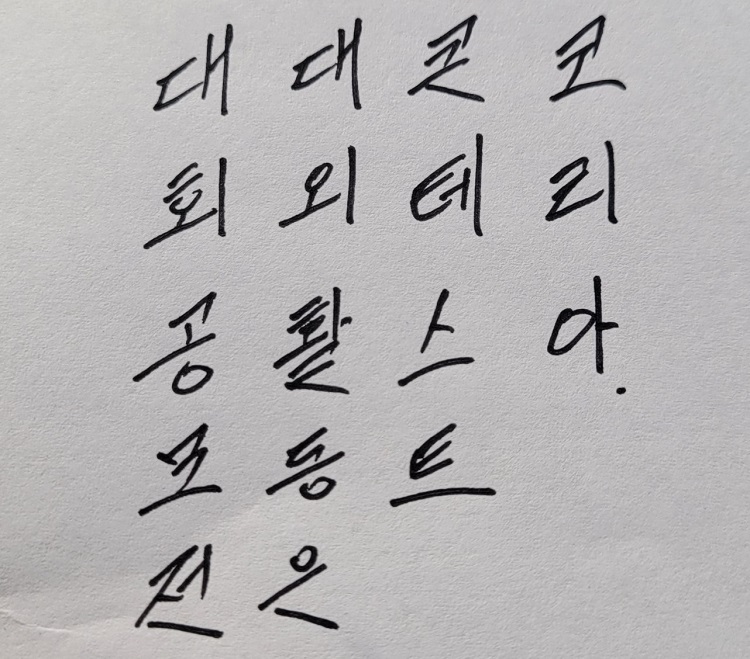 대회공모전
대외활동은
콘테스트
코리아.